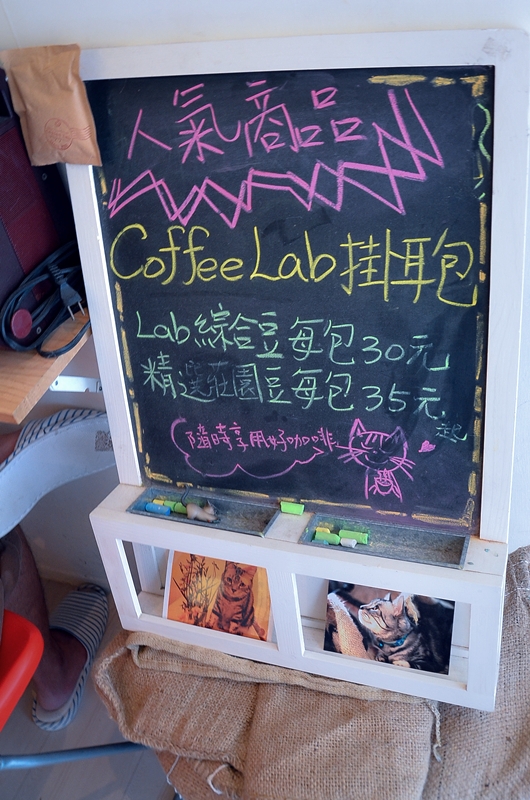 人氣商品
Coffee Lab 掛耳包
Lab 綜合豆每包30元
精選莊園豆每包35元起
隨時享用好咖啡